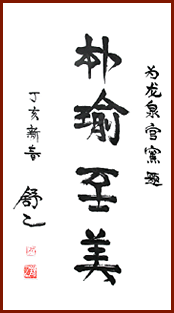 为龙泉官窑题
朴瑜至美
丁亥新春
舒乙